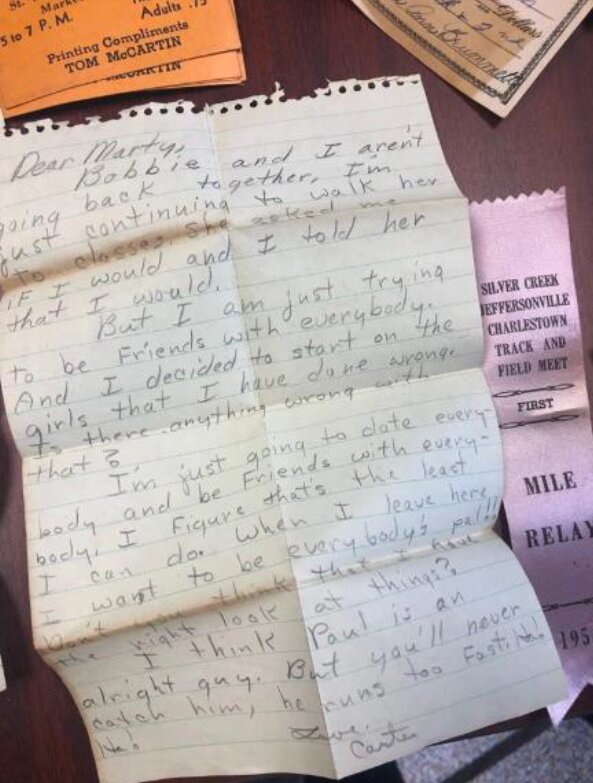 St.
Market
5 to 7 P.M.
Adults .75
Printing Compliments
TOM McCARTIN
McCARTIN
Dollars
Dear Marty,
Bobbie and I aren't
going back together, I'm
just continuing to walk her
to classes. She asked me
if I would and I told her
that I would.
But I am just trying
to be Friends with everybody.
And I decided to start on the
girls that I have done wrong.
Is there anything wrong with
that?
I'm just going to date every-
body and be Friends with every-
body. I Figure that's the least
I can do. When I leave here
I want to be everybody's pal!!
Don't you think that I have
the right look at things?
I think Paul is an
alright guy. But you'll never
catch him, he runs too Fast! Ha!
Ha!
Love,
Carter
SILVER CREEK
JEFFERSONVILLE
CHARLESTOWN
TRACK AND
FIELD MEET
FIRST
MILE
RELAY
195